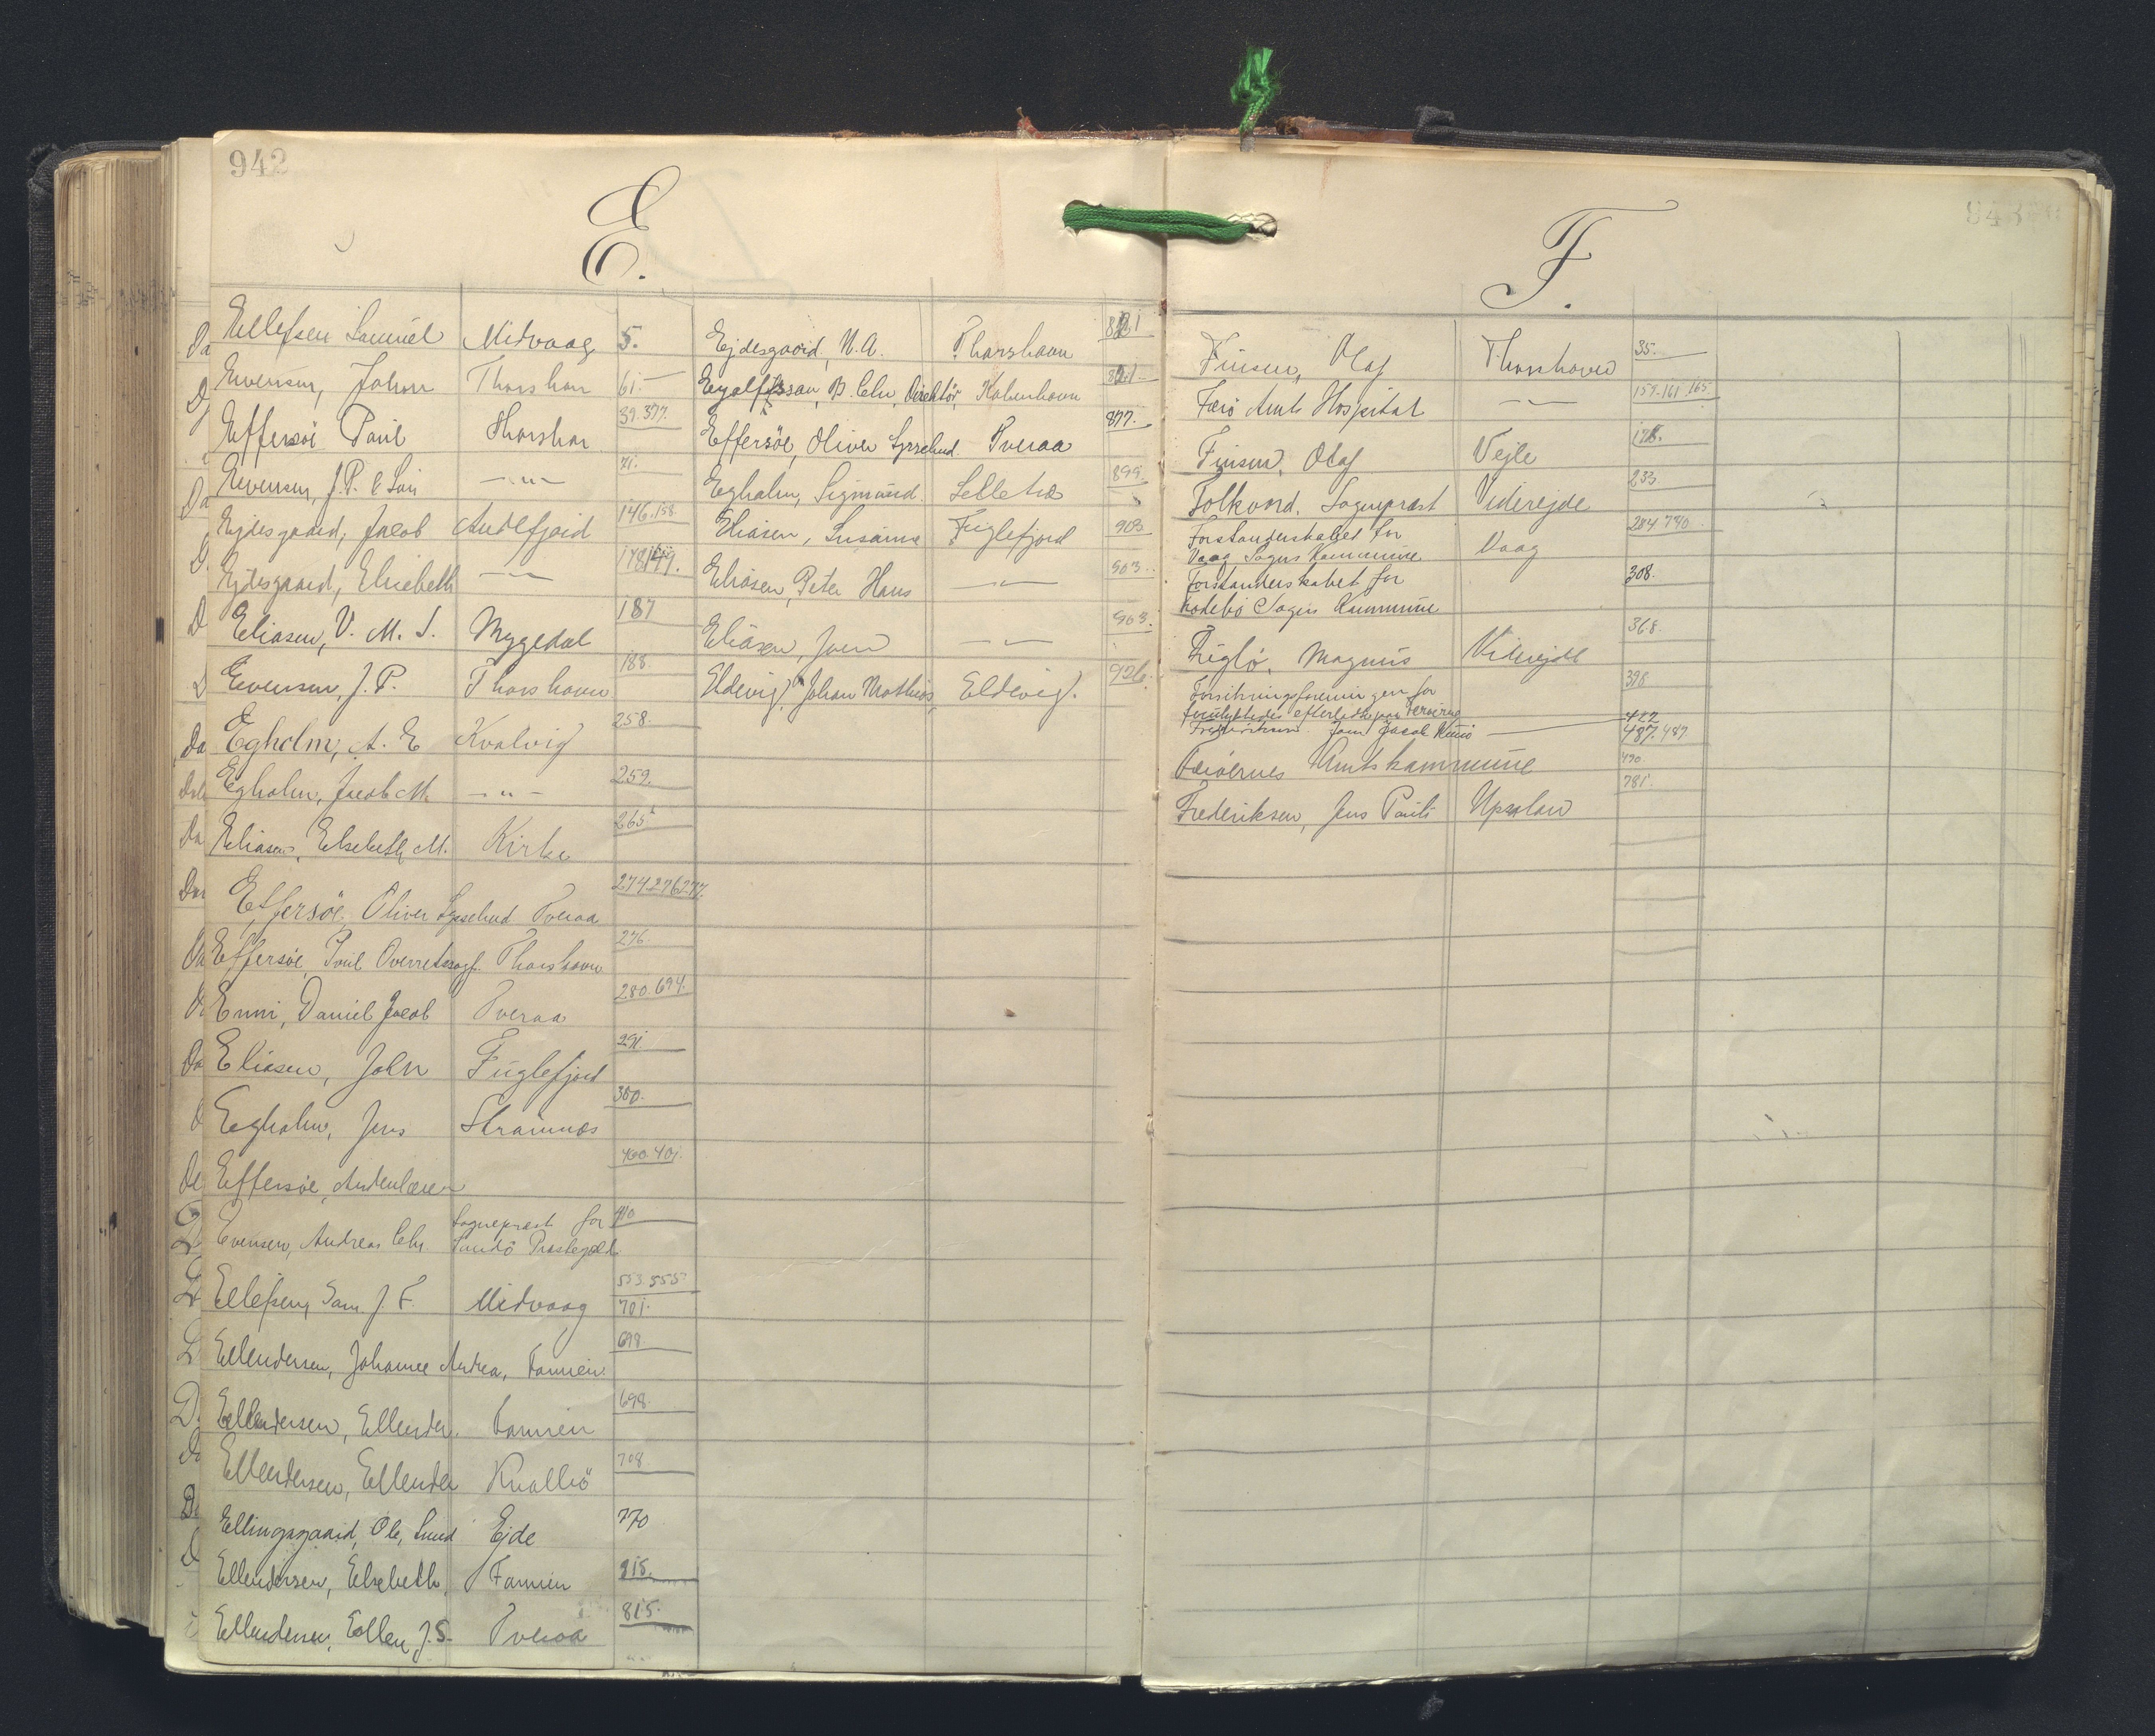 942
E.
Ellefsen Samuel Midvaag 5.
Evensen, Johan Thorshavn 61.
Effersöi Paul Thorshavn 39.377.
Evensen, J.P. & Sön -"- 71.
Ejdesgaard, Jacob Andefjord 146.158
Ejdesgaard, Elsebeth -"- 149.
Eliasen, V. M. S. Myggedal 187
Evensen, J.P. Thorshavn 188.
Egholm, A. E Kvalvig 258.
Egholm, Jacob M. -"- 259.
Eliasen, Elsebeth M. Kirke 265
Effersöe, Oliver Sysselmd Tveraa 274.276.277.
Effersöe, Poul Overretssagf. Thorshavn 276.
Enni, Daniel Jacob Tveraa 280.694.
Eliasen, John Fuglefjord 291.
Egholm, Jens Strømnæs 300.
Effersöe, Andenlærer 400.401.
Evensen, Andreas Chr Sognepræst for Sandö Præstegæld 410
Ellefsen, Sam. J. F. Midvaag 553.555. 701.
Ellendersen, Johanne Andrea, Famien 698.
Ellendersen, Ellender. Famien 698.
Ellendersen, Ellender Kvalbö 708.
Ellingsgaard, Ole, Sund Ejde 770
Ellendersen, Elsebeth, Famien 815.
Ellendersen, Ellen J.S. Tveraa 815.
Ejdesgaard, N.A. Thorshavn 821
Eyolfsson, B. Chr, Direktör, København 821.
Effersöe, Oliver Sysselmd. Tveraa 877.
Egholm, Sigmund. Selletræ 899.
Eliasen, Susanne Fuglefjord 903
Eliasen, Peter Hans -"- 903.
Eliasen, Joen -"- 903.
Eldevig, Johan Mathias, Eldevig. 926.
943
F.
Finsen, Olaf Thorshavn 35.
Færö Amts Hospital -"- 159.161.165.
Finsen, Olaf Vejle 178.
Folkvord. Sognepræst Viderejde 233
Forstanderskabet for
Vaag Sogns Kommune Vaag 284 790.
Forstanderskabet for
Kvalbö Sogns Kommune 308.
Fuglö, Magnus Viderejde 368.
Forsikringsforeningen for
forulykkedes efterladte paa Færöerne 398
Frederiksen. Joen Jacob Kunö 422
487.487
Færöernes Amtskommune 490
Frederiksen, Jens Pauli Upsalan 781.